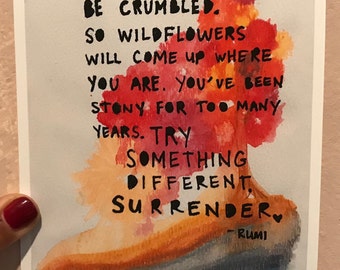 BE CRUMBLED.
SO WILDFLOWERS
WILL COME UP WHERE
YOU ARE. YOU'VE BEEN
STONY FOR TOO MANY
YEARS. TRY
SOMETHING
DIFFERENT.
SURRENDER.
- RUMI